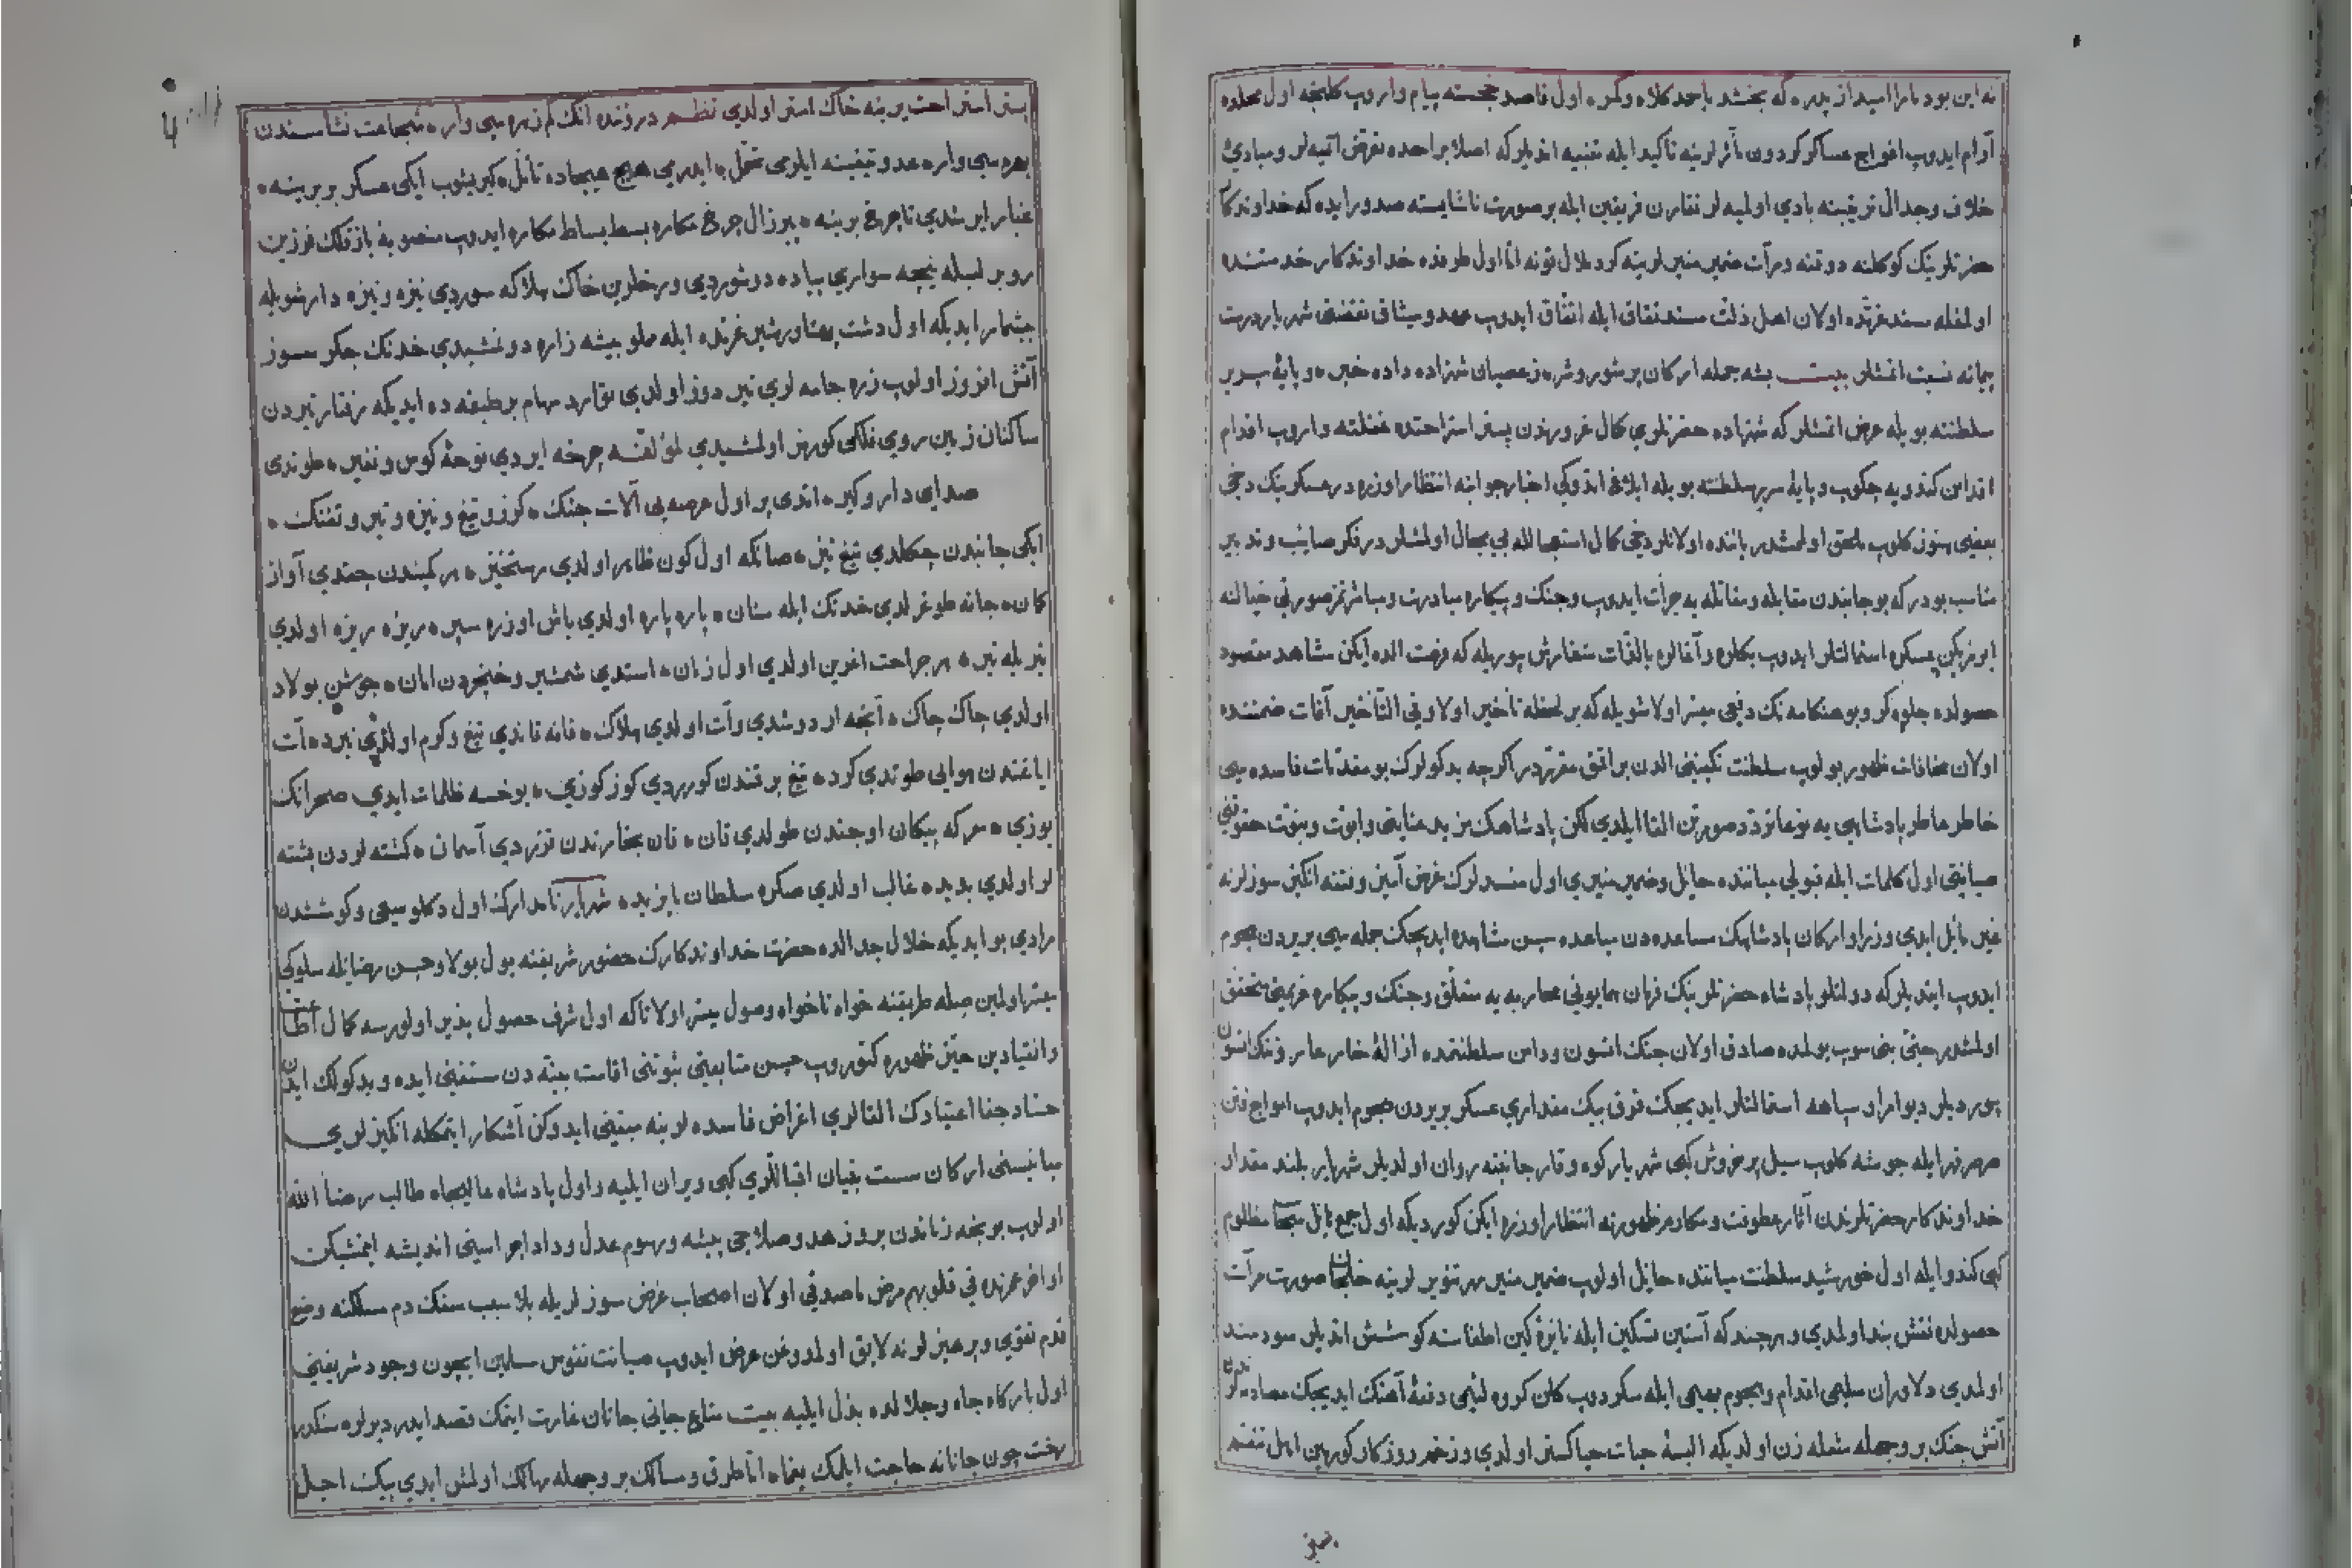 نه این بود مارا امید از پدر که بخشد باحمد کلاه وکمر اول قاصد خجسته پیام واروب کلیجه اول محلده
آرام ایدوب افواج عساکر کردون مآثرلرینه تاکید ایله تنبیه اتدیلر که اصلا بر احده تعرض اتمیه لر ومبادئ
خلاف وجدال تریبنه بادی اولمیه لر تقارن فریقین ایله بر صورت ناشایسته صدور ایده که خداوندکار
حضرتلرینک کوکلنه دوقنه ومرآت ضمیر منیرلرینه کرد ملال قونه اما اول طرفده خداوندکار خدمتنده
اولمغله سند عزتده اولان اهل ذلت مسند نفاق ایله اتفاق ایدوب عهد ومیثاق نقضنی شهریار درست
پیمانه نسبت اتمشلر بیت بشه جمله ارکان پر شور وشر زعصیان شهزاده داده خبر و پایۀ سریر
سلطنته بویله عرض اتمشلر که شهزاده حضرتلری کمال غروردن بستر استراحتده غفلته واروب اقدام
اقدامن کندویه چکوب وپایۀ سریر سلطنته بویله ابلاغ اتدوکی اخبار جوابنه انتظار اوزره در عسکرینک دخی
بعضی هنوز کلوب ملحق اولمشدر یاننده اولانلر دخی کمال استعجالله بی مجال اولمشلردر فکر صایب وتدبیر
مناسب بودر که بو جانبدن مقابله ومقاتله یه جرأت ایدوب وجنک وپیکاره مبادرت ومباشرتمز صورتی خیالنه
ایرمزیکن عسکره استمالتلر ایدوب بکلره وآغالره بالذات سفارش بیوریله که فرصت الده ایکن مشاهد مقصود
حصولده جلوه کر وبو هنکامه نک دفعی میسر اولا شویله که بر لحظه تأخیر اولا وفی التأخیر آفات ضمننده
اولان مخافات ظهور بولوب سلطنت نکینی الدن براقق مقرردر اکرچه بدکولرک بو مقدمات فاسده سی
خاطر عاطر پادشاهی یه بو نوعا تردد صورتن القا ایلدی لکن پادشاهک مزید عنایتی وابوت وبنوت حقوقنی
صیانتی اول کلمات ایله قبولی میاننده حایل وضمیر منیری اول مفسدلرک غرض آمیز وفتنه انکیز سوزلرنه
غیر مایل ایدی وزرا وارکان پادشاهک مساعده دن مباعده سین مشاهده ایدیجک جمله سی بریردن هجوم
ایدوب ایتدیلر که دولتلو پادشاه حضرتلرینک فرمان همایونی محاربه یه متعلق وجنک وپیکاره عزیمتی محقق
اولمشدر حتی بنی سوب یولمده صادق اولان جنک اتسون ودامن سلطنتمده ازالۀ خار عار وننک اتسون
بیوردیلر دیو امرا وسپاهه استمالتلر ایدیجک قرق بیک مقداری عسکر بریردن هجوم ایدوب امواج فتن
صرصر قهر ایله جوشه کلوب سیل پر خروش کبی شهریار کوه وقار جانبنه روان اولدیلر شهریار بلند مقدار
خداوندکار حضرتلرندن آثار عطوفت ومکارم ظهورنه انتظار اوزره ایکن کوردیکه اول جمع مایل سحاب مظلوم
کبی کندو ایله اول خورشید سلطنت میاننده حایل اولوب ضمیر منیر مهر تنویرلرینه صورت مرآت
حصولده نقش بند اولمدی وهرچند که آستین تسکین ایله نایرۀ کین اطفاسنه کوشش اتدیلر سودمند
اولمدی دلاوران سلیمی اقدام وهجوم بعیی ایله سکردوب کلن کروه لئیمی دفعۀ آهنک ایدیجک مصادمه لرندن
آتش جنک بر وجهله شعله زن اولدیکه البسۀ حیات خاکستر اولدی وزخمه روزکار کورمین اهل تنعم
بستر
بستر استراحت یرینه خاک استر اولدی نظم در رزنده انک کم زهره سی وار شجاعت نشاسندن
بهره سی وار عدو تیغینه ایلرمی تحمل ایدرمی هیچ هیجاده تأمل کیریشوب ایکی عسکر بر برینه
غبار ایرشدی تا چرخ برینه پیر زال چرخ مکاره بسط بساط مکاره ایدوب منصوبه باز فلک فرزین
روبر لعبله نیجه سواری پیاده دوشوردی ورخلرین خاک هلاکه سوردی نیزه ونیزه دار شویله
بیشمار ایدیکه اول دشت پهناور شیر غرنده ایله مملو بیشه زاره دونمشیدی خدنک جکر سوز
آتش افروز اولوب زره جامه لری تیر دوز اولدی توارد سهام بر طبقه ده ایدیکه رفتار تیردن
ساکنان زمین روی فلکی کورمز اولمشیدی لمؤلفه چرخه ایردی نوحۀ کوس ونفیر طوتدی
صدای دار وکیر اتدی پر اول عرصه یی آلات جنک کرز وتیغ ونیزه وتیر وتفنک
ایکی جانبدن چکلدی تیغ تیز صانکه اول کون ظاهر اولدی رستخیز هر کمیندن چقدی آواز
کمان جانه طوغرلدی خدنک ایله سنان پاره پاره اولدی باش اوزره سپر ریزه ریزه اولدی
نیزیله تبر هر جراحت اغزین اولدی اول زمان استدی شمشیر وخنجردن امان جوشن بولاد
اولدی چاک چاک آنجه ار دوشدی وآت اولدی هلاک قانه قاندی تیغ وکرم اولدی نبرد آت
ایاغندن هوایی طوتدی کرد تیغ برقندن کوررдی کوز کوزی یوخسه ظلمات ایدی صحرانک
یوزی سرکه پیکان اوجندن طولدی قان قان بخارندن قزردی آسمان کشته لردن پشته
لر اولدی بدید غالب اولدی صکره سلطان بایزید شهریار نامدارک اول دکلو سعی وکوششدن
مرادی بو ایدیکه خلال جدالده حضرت خداوندکارک حضور شریفنه یول بولا وحسن رضائله سلوکی
میسر اولمین صله طریقنه خواه ناخواه وصول میسر اولا تاکه اول شرف حصول پذیر اولورسه کمال
وانقیادین حیز ظهوره کتوروب حسن متابعتی ثبوتنی اقامت بینه دن مستغنی ایده وبدکولک ایدن
حساد جفا اعتیادک القالری اغراض فاسده لرینه مبتنی ایدوکن آشکار ایتمکله انکیزلری
مبانیسنی ارکان سست بنیان اقباللری کبی ویران ایلیه واول پادشاه عالیجاه طالب رضاء الله
اولوب بو نجه زماندن برو زهد وصلاحی پیشه ورسوم عدل وداد اجراسنی اندیشه ایتمشیکن
اواخر عمرنده فی قلوبهم مرض ماصدقی اولان اصحاب غرض سوزلریله بلا سبب سفک دم مسلکنه وضع
قدم تقوی وپرهیزلرنه لایق اولمدوغن عرض ایدوب صیانت نفوس مسلمین ایچون وجود شریفنی
اول بارکاه جاه وجلالده بذل ایلیه بیت متاع جانی جانان غارت ایتمک قصد ایدر دیرلر
نخست چون جانانه حاجت ایلمک یغما اما طرق ومسالک بر وجهله مهالک اولمش ایدی پیک اجل